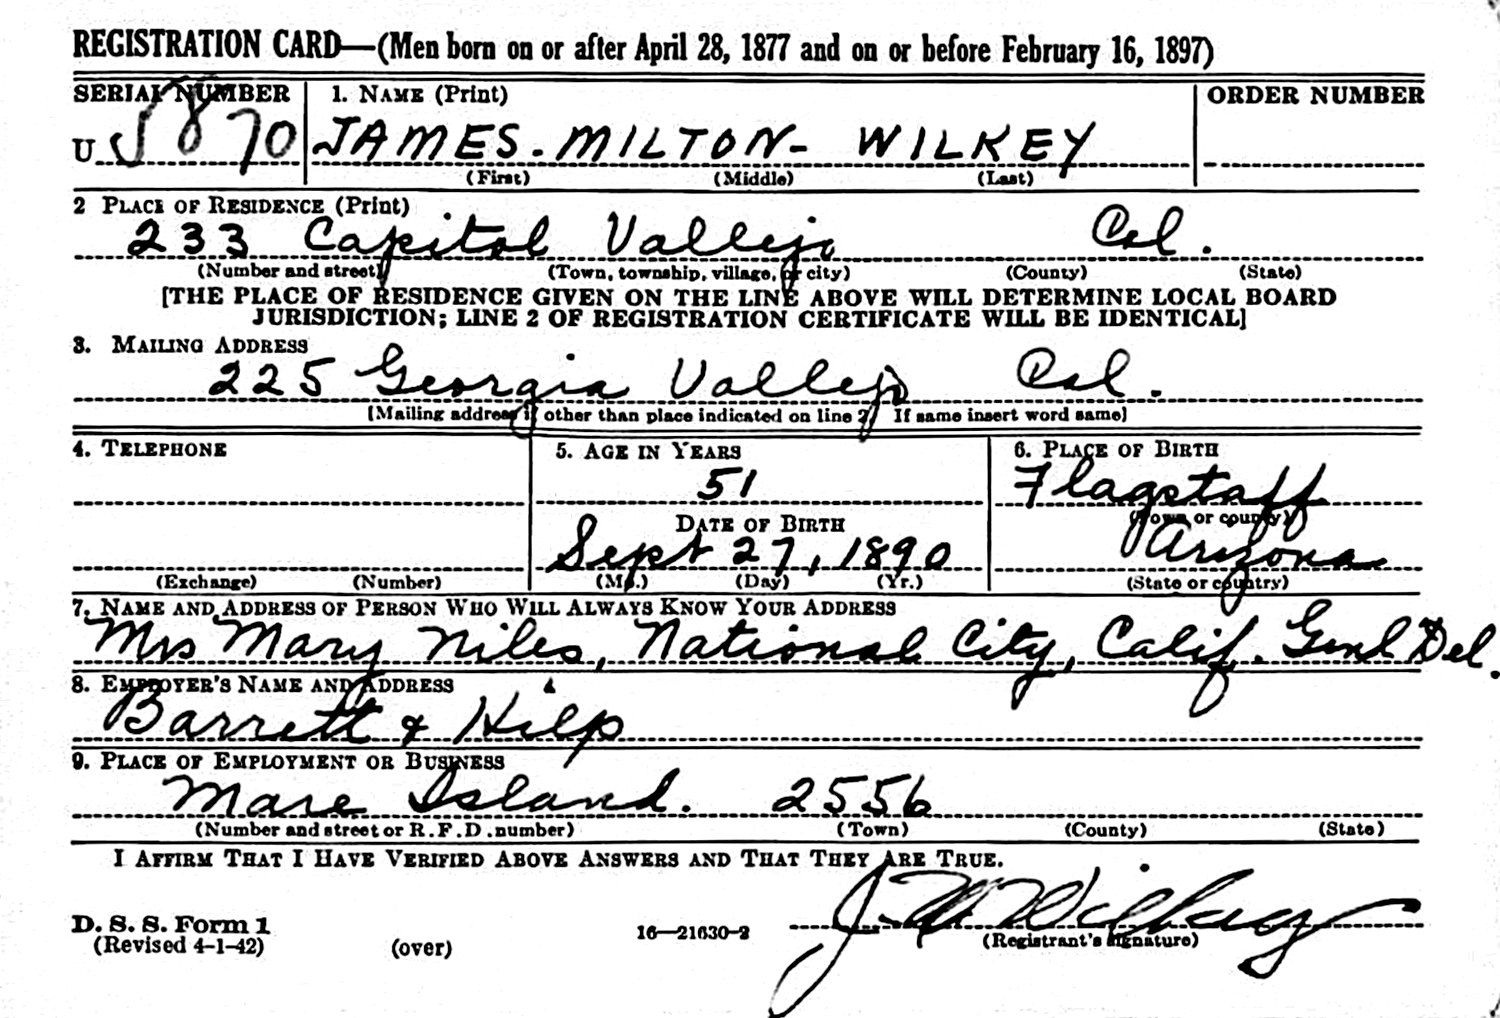 REGISTRATION CARD—(Men born on or after April 28, 1877 and on or before February 16, 1897)
SERIAL NUMBER 1. NAME (Print) ORDER NUMBER
U 5870 JAMES. MILTON- WILKEY
(First) (Middle) (Last)
2 PLACE OF RESIDENCE (Print)
233 Capitol Vallejo Cal.
(Number and street) (Town, township, village, or city) (County) (State)
[THE PLACE OF RESIDENCE GIVEN ON THE LINE ABOVE WILL DETERMINE LOCAL BOARD
JURISDICTION; LINE 2 OF REGISTRATION CERTIFICATE WILL BE IDENTICAL]
3. MAILING ADDRESS
225 Georgia Vallejo Cal.
[Mailing address if other than place indicated on line 2 If same insert word same]
4. TELEPHONE 5. AGE IN YEARS 6. PLACE OF BIRTH
51 Flagstaff
DATE OF BIRTH (Town or county)
Sept 27, 1890 Arizona
(Exchange) (Number) (Mo.) (Day) (Yr.) (State or country)
7. NAME AND ADDRESS OF PERSON WHO WILL ALWAYS KNOW YOUR ADDRESS
Mrs Mary Niles, National City, Calif. Genl Del.
8. EMPLOYER'S NAME AND ADDRESS
Barrett & Hilp
9. PLACE OF EMPLOYMENT OR BUSINESS
Mare Island. 2556
(Number and street or R.F.D. number) (Town) (County) (State)
I AFFIRM THAT I HAVE VERIFIED ABOVE ANSWERS AND THAT THEY ARE TRUE.
J. M Wilkey
D. S. S. Form 1
(Revised 4-1-42) (over) 16—21630-2 (Registrant's signature)